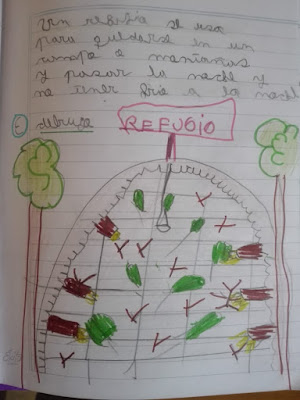 Un refugio se usa
para quedarse en un
campo o montañas
y pasar la noche y
no tener frio a la noche
dibujo
REFUGIO